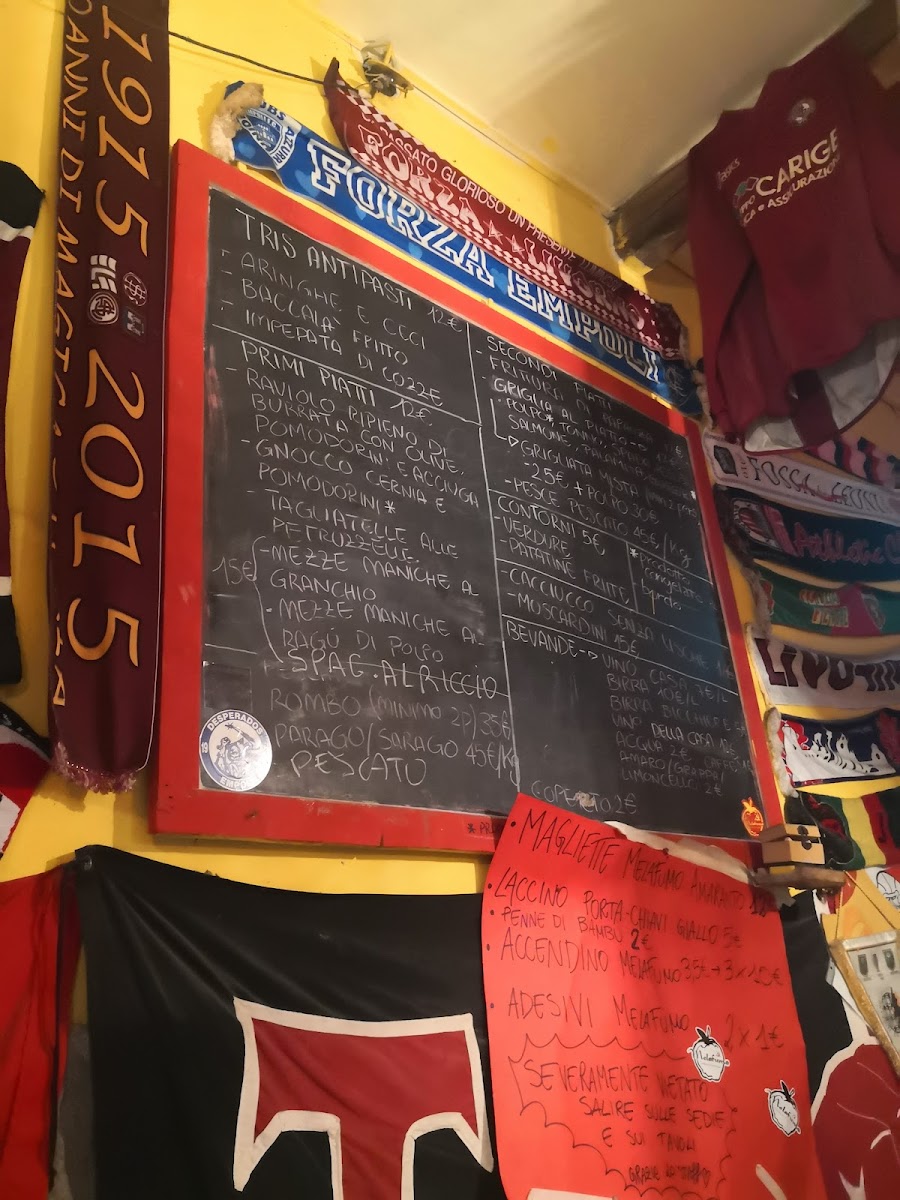 1915 2015
FORZA EMPOLI
CARIGE
TRIS ANTIPASTI 12€
- ARINGHE E CECI
- BACCALÀ FRITTO
- IMPEPATA DI COZZE
PRIMI PIATTI 12€
- RAVIOLO RIPIENO DI
BURRATA CON OLIVE,
POMODORINI E ACCIUGA
- GNOCCO CERNIA E
POMODORINI*
- TAGLIATELLE ALLE
PETRUZZELLE
15€
- MEZZE MANICHE AL
GRANCHIO
- MEZZE MANICHE AL
RAGÙ DI POLPO
SPAG. AL RICCIO
ROMBO (MINIMO 2P) 35€
PARAGO/SARAGO 45€/Kg
PESCATO
SECONDI PIATTI
- FRITTURA DI PARANZA
GRIGLIA AL PIATTO
- POLPO*, TONNO*,
SALMONE,
GRIGLIATA MISTA
25€ + POLPO 30€
- PESCE PESCATO 45€/Kg
CONTORNI 5€
- VERDURE
- PATATINE FRITTE
* prodotto
congelato
bordo
- CACCIUCCO SENZA LISCHE
- MOSCARDINI 15€
BEVANDE → VINO CASA
BIRRA 10€/L
BIRRA
VINO DELLA CASA
ACQUA 2€
AMARO/GRAPPA/
LIMONCELLO 2€
COPERTO 2€
DESPERADOS
19
EMPOLI
• MAGLIETTE MELAFUMO AMARANTO
• LACCINO PORTA-CHIAVI GIALLO 5€
• PENNE DI BAMBÙ 2€
• ACCENDINO MELAFUMO 3,5€ → 3 x 10€
• ADESIVI MELAFUMO 2 x 1€
SEVERAMENTE VIETATO
SALIRE SULLE SEDIE
E SUI TAVOLI
GRAZIE LO STAFF